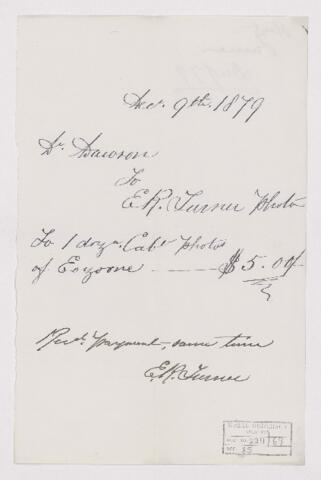 Dec. 9th, 1879
Dr. Dawson
To
E.R. Turner Photo
To 1 doz. Cabt. Photos
of Eozoone — $5.00
Recd. payment, same time
E.R. Turner